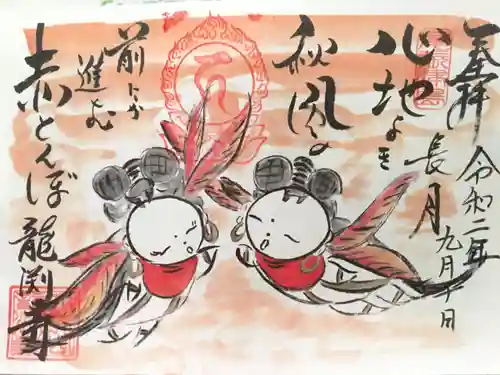 奉拝
令和二年
長月
九月十日
心地よき
秋風の
前にか
進む
赤とんぼ
龍渕寺